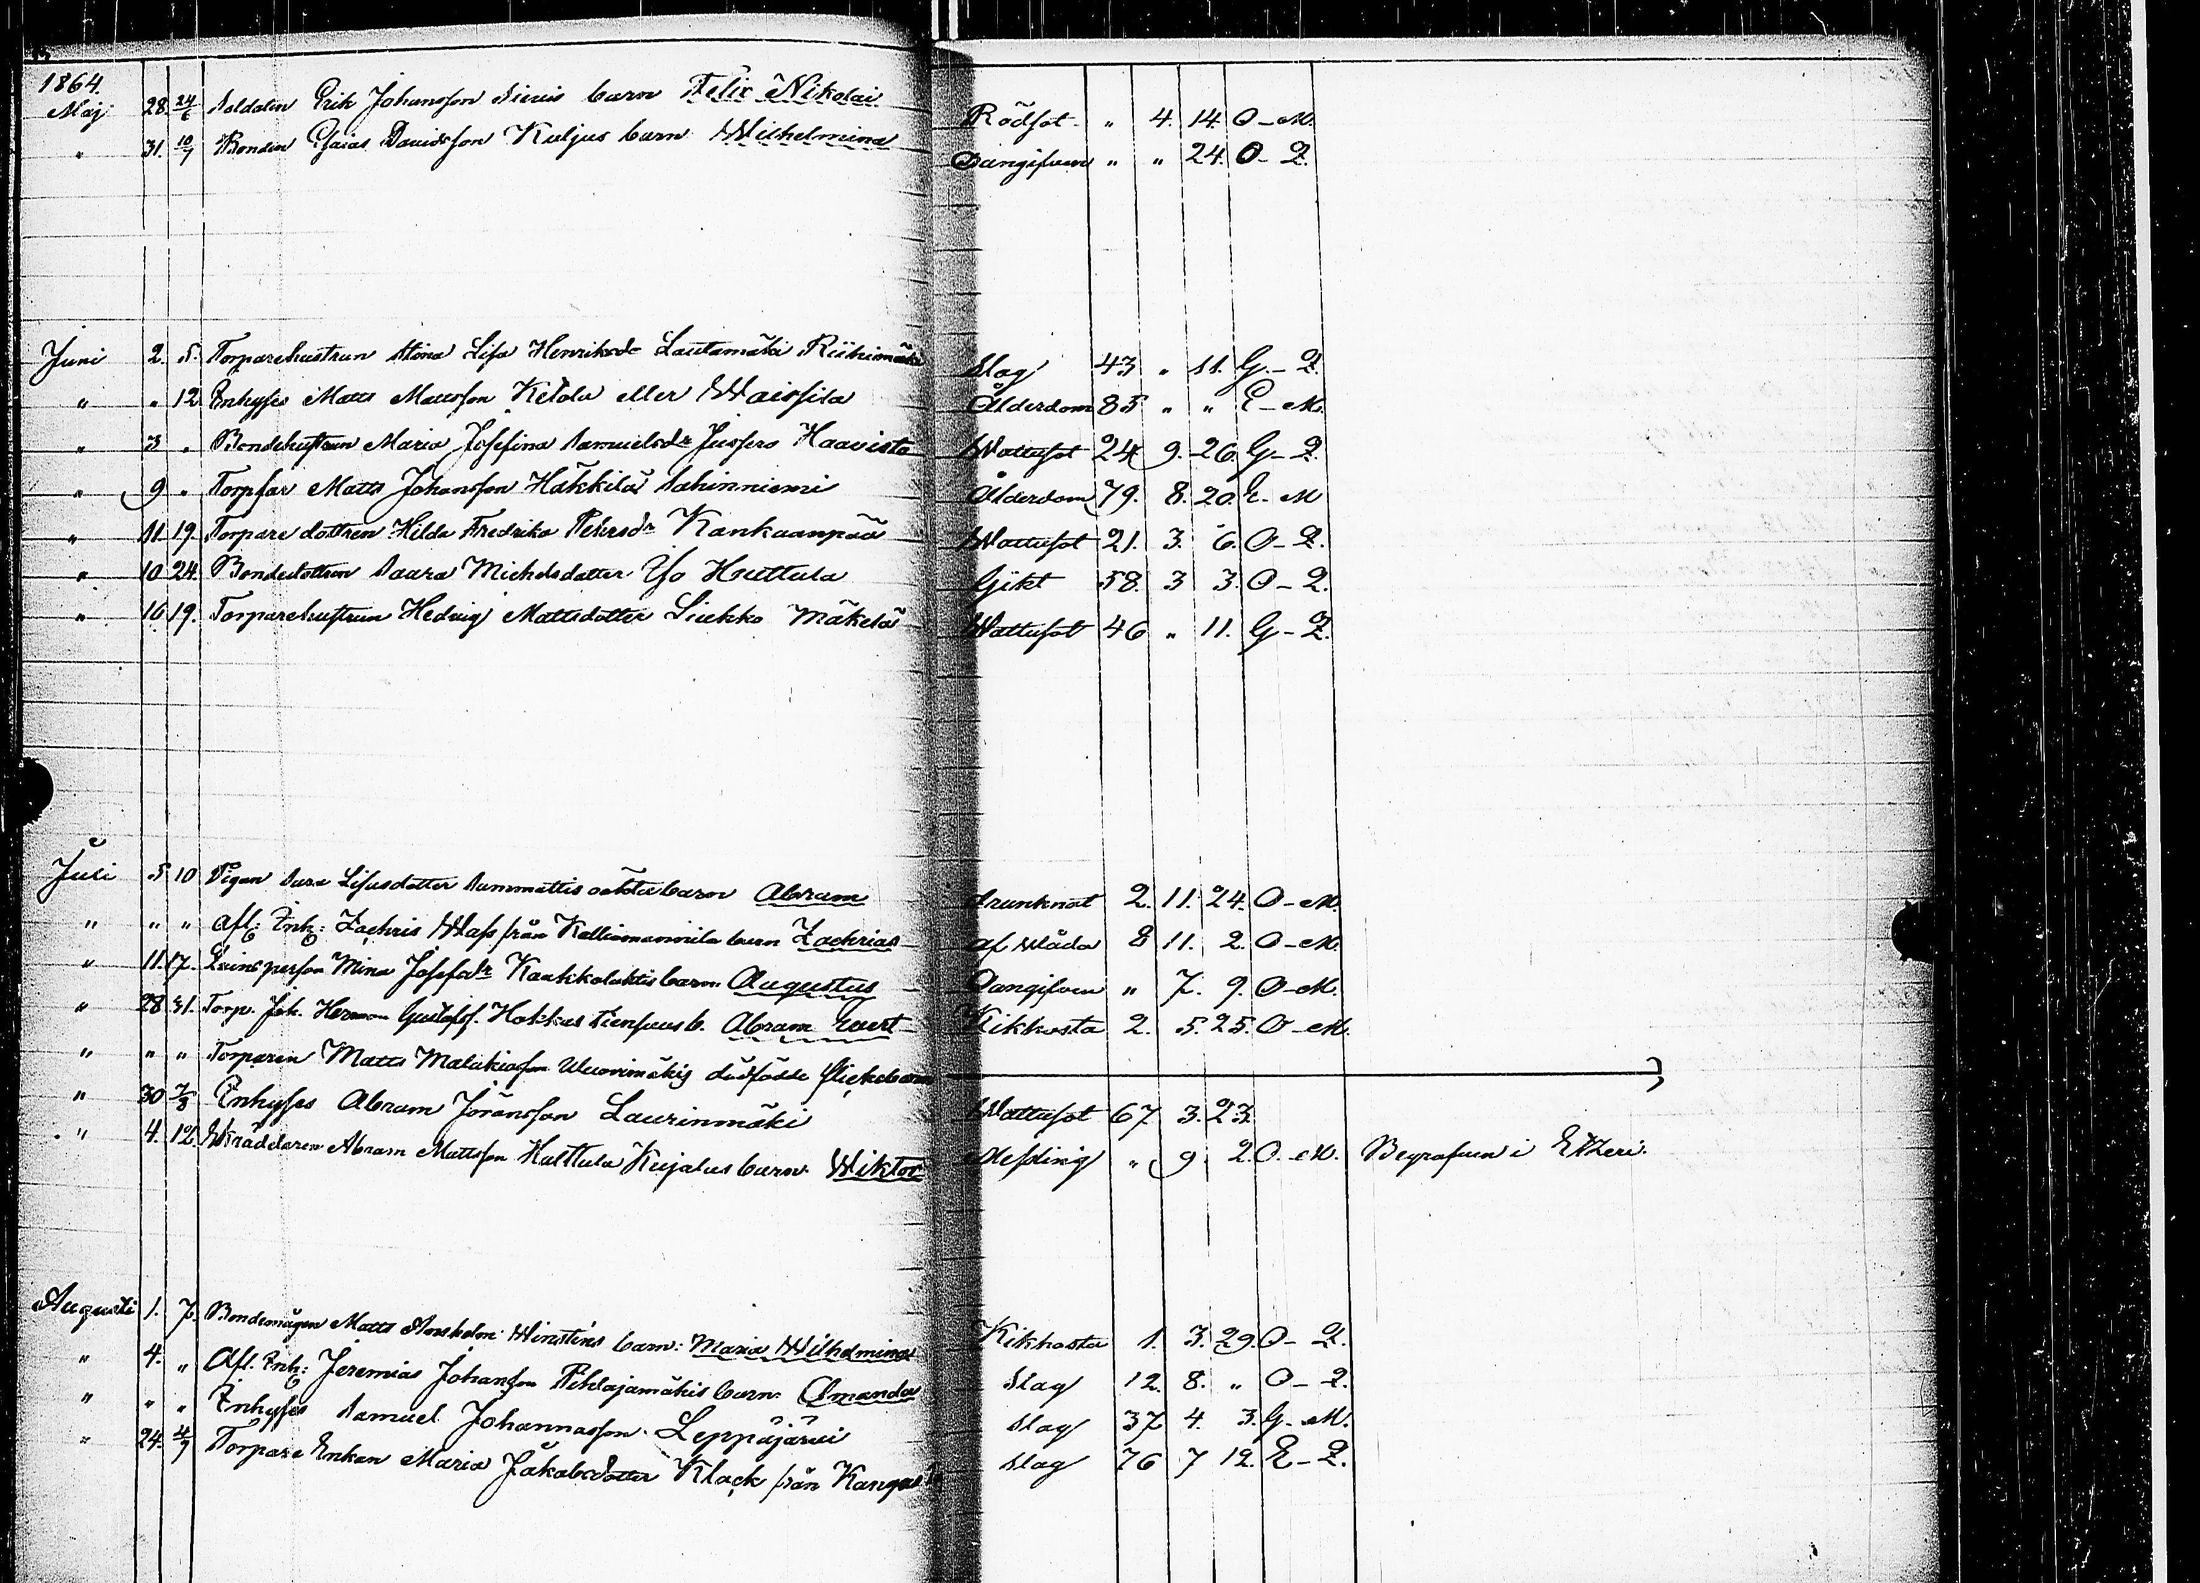 1864.
Maj 28. 24/6 Soldaten Erik Johansson Sieuis barn Felix Nikolai Rödsot " 4. 14. O - M.
" 31. 10/7 Bonden Esaias Davidsson Kuljus barn Wilhelmina Oangifven " " 24. O - Q.
Juni 2. 5. Torparehustrun Stina Lisa Henriksdr Lautamäki Riihimäki Slag 43 " 11. G. - Q.
" " 12 Enhyses Matts Mattsson Ketola eller Waissila Ålderdom 85 " " E - M.
" 3 " Bondehustrun Maria Josefina Samuelsdr Jussero Haavisto Wattusot 24 9. 26. G - Q.
" 9 " Torpfar Matts Johansson Häkkilä Sahinniemi Ålderdom 79. 8. 20. E. - M
" 11. 19. Torpare dottren Hilda Fredrika Petersdr Kankaanpää Wattusot 21. 3. 6. O - Q.
" 10 24. Bondedottren Saara Michelsdotter Yso Huttula Gikt 58. 3 3. O - Q.
" 16 19. Torparehustrun Hedvig Mattsdotter Liukko Mäkelä Wattusot 46 " 11. G - Q.
Juli 5 10 Pigan Sara Lisusdotter Sammattis oäkta barn Abram drunknat 2. 11. 24. O - M.
" " " Afl: Enh: Zachris Wass från Kalliomannila barn Zachrias af Wåda 8 11. 2. O - M.
" 11. 17. Qvinsperson Mina Josefsdr Kaukkolahtis barn Augustus Oangifven " 7. 9. O - M.
" 28 31. Torp. Joh. Herman Gustafss. Hokkas Pienpuus b. Abram Evert Kikhosta 2. 5. 25. O - M.
" " " Torparen Matts Malakiasson Wuorimäkis dödfödde flickebarn
" 30 7/8 Enhyses Abram Göransson Laurinmäki Wattusot 67 3. 23.
" 4. 12. Skräddaren Abram Mattsson Hulttula Kujalas barn Wiktor Messling " 9 2. O. - M. Begrafven i Etzeri.
Augusti 1. 7. Bondemågen Matts Ansholm Winstens barn: Maria Wilhelmina Kikhosta 1. 3. 29. O - Q.
" 4. " Afl. Enh: Jeremias Johansson Pihlajamäkis barn Amanda Slag 12. 8. " O - Q.
" " " Enhyses Samuel Johannasson Leppäjärvi Slag 37 4. 3. G - M.
" 24. 4/9 Torpare Enkan Maria Jakobsdotter Klack från Kangas Slag 76 7 12. E - Q.